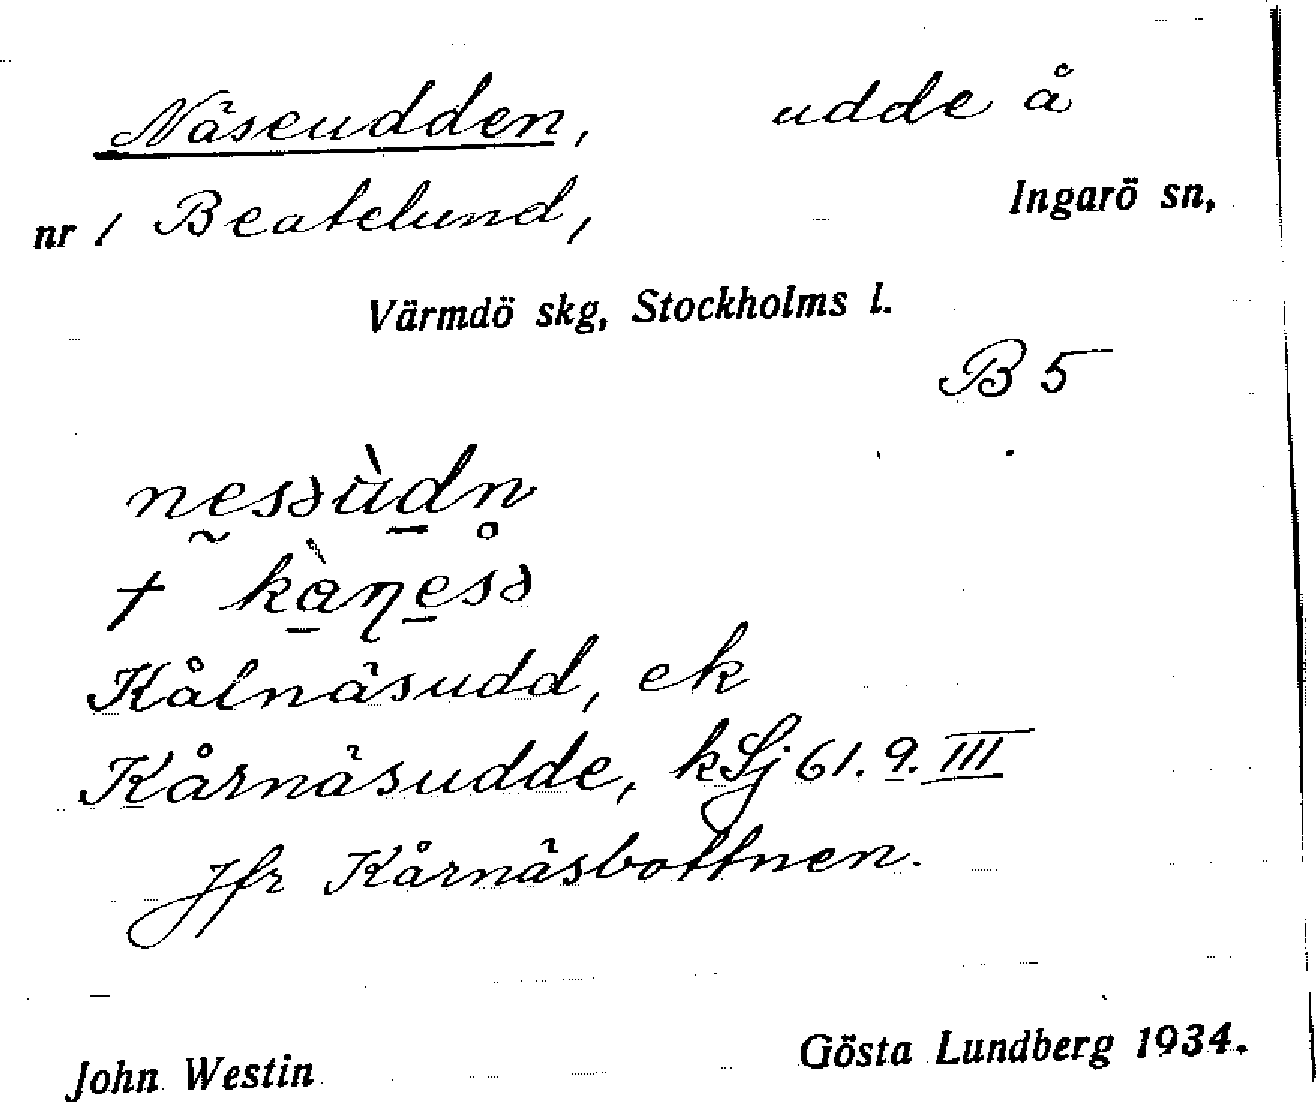 Näseudden, udde å
nr 1 Beatelund, Ingarö sn,
Värmdö skg, Stockholms l.
B 5
n̰essəùd̲n̥
† kà̲ŋe̲sə
Kålnäsudd, ek
Kårnäsudde, kSj 61. 9. III
Jfr Kårnäsbottnen.
John Westin Gösta Lundberg 1934.